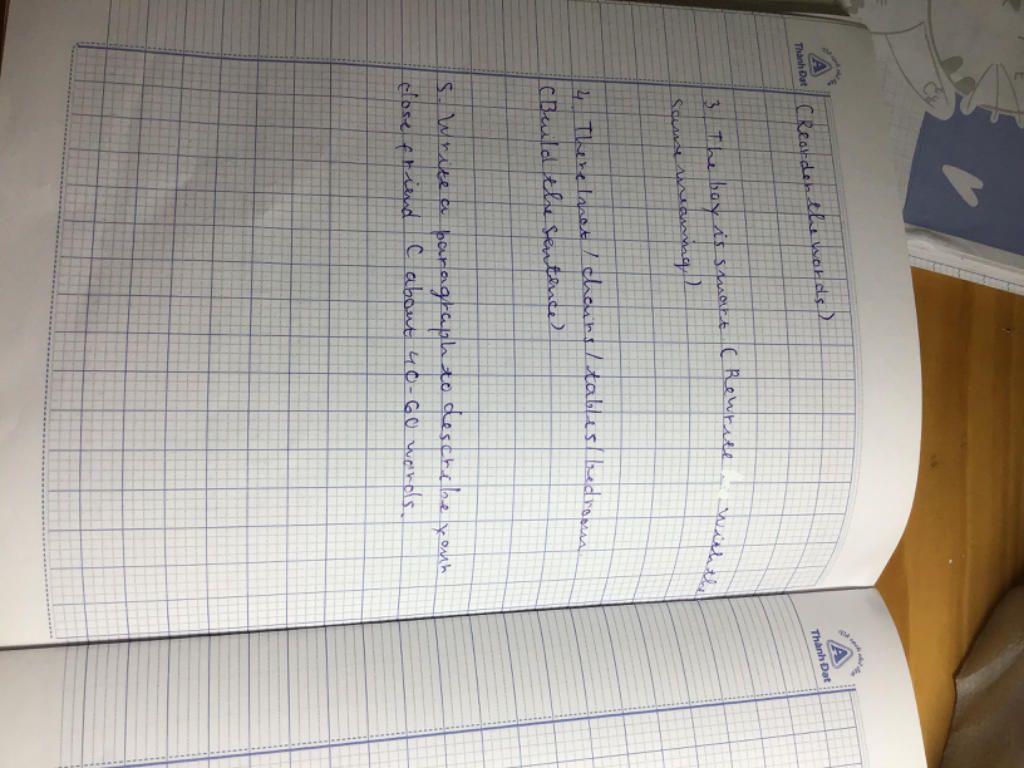 Thành Đạt
(Reorder the words)
3. The boy is smart (Rewrite with the
same meaning)
4. There / not / chairs / tables / bedroom
(Build the sentence)
5. Write a paragraph to describe your
close friend (about 40-60 words.
Thành Đạt